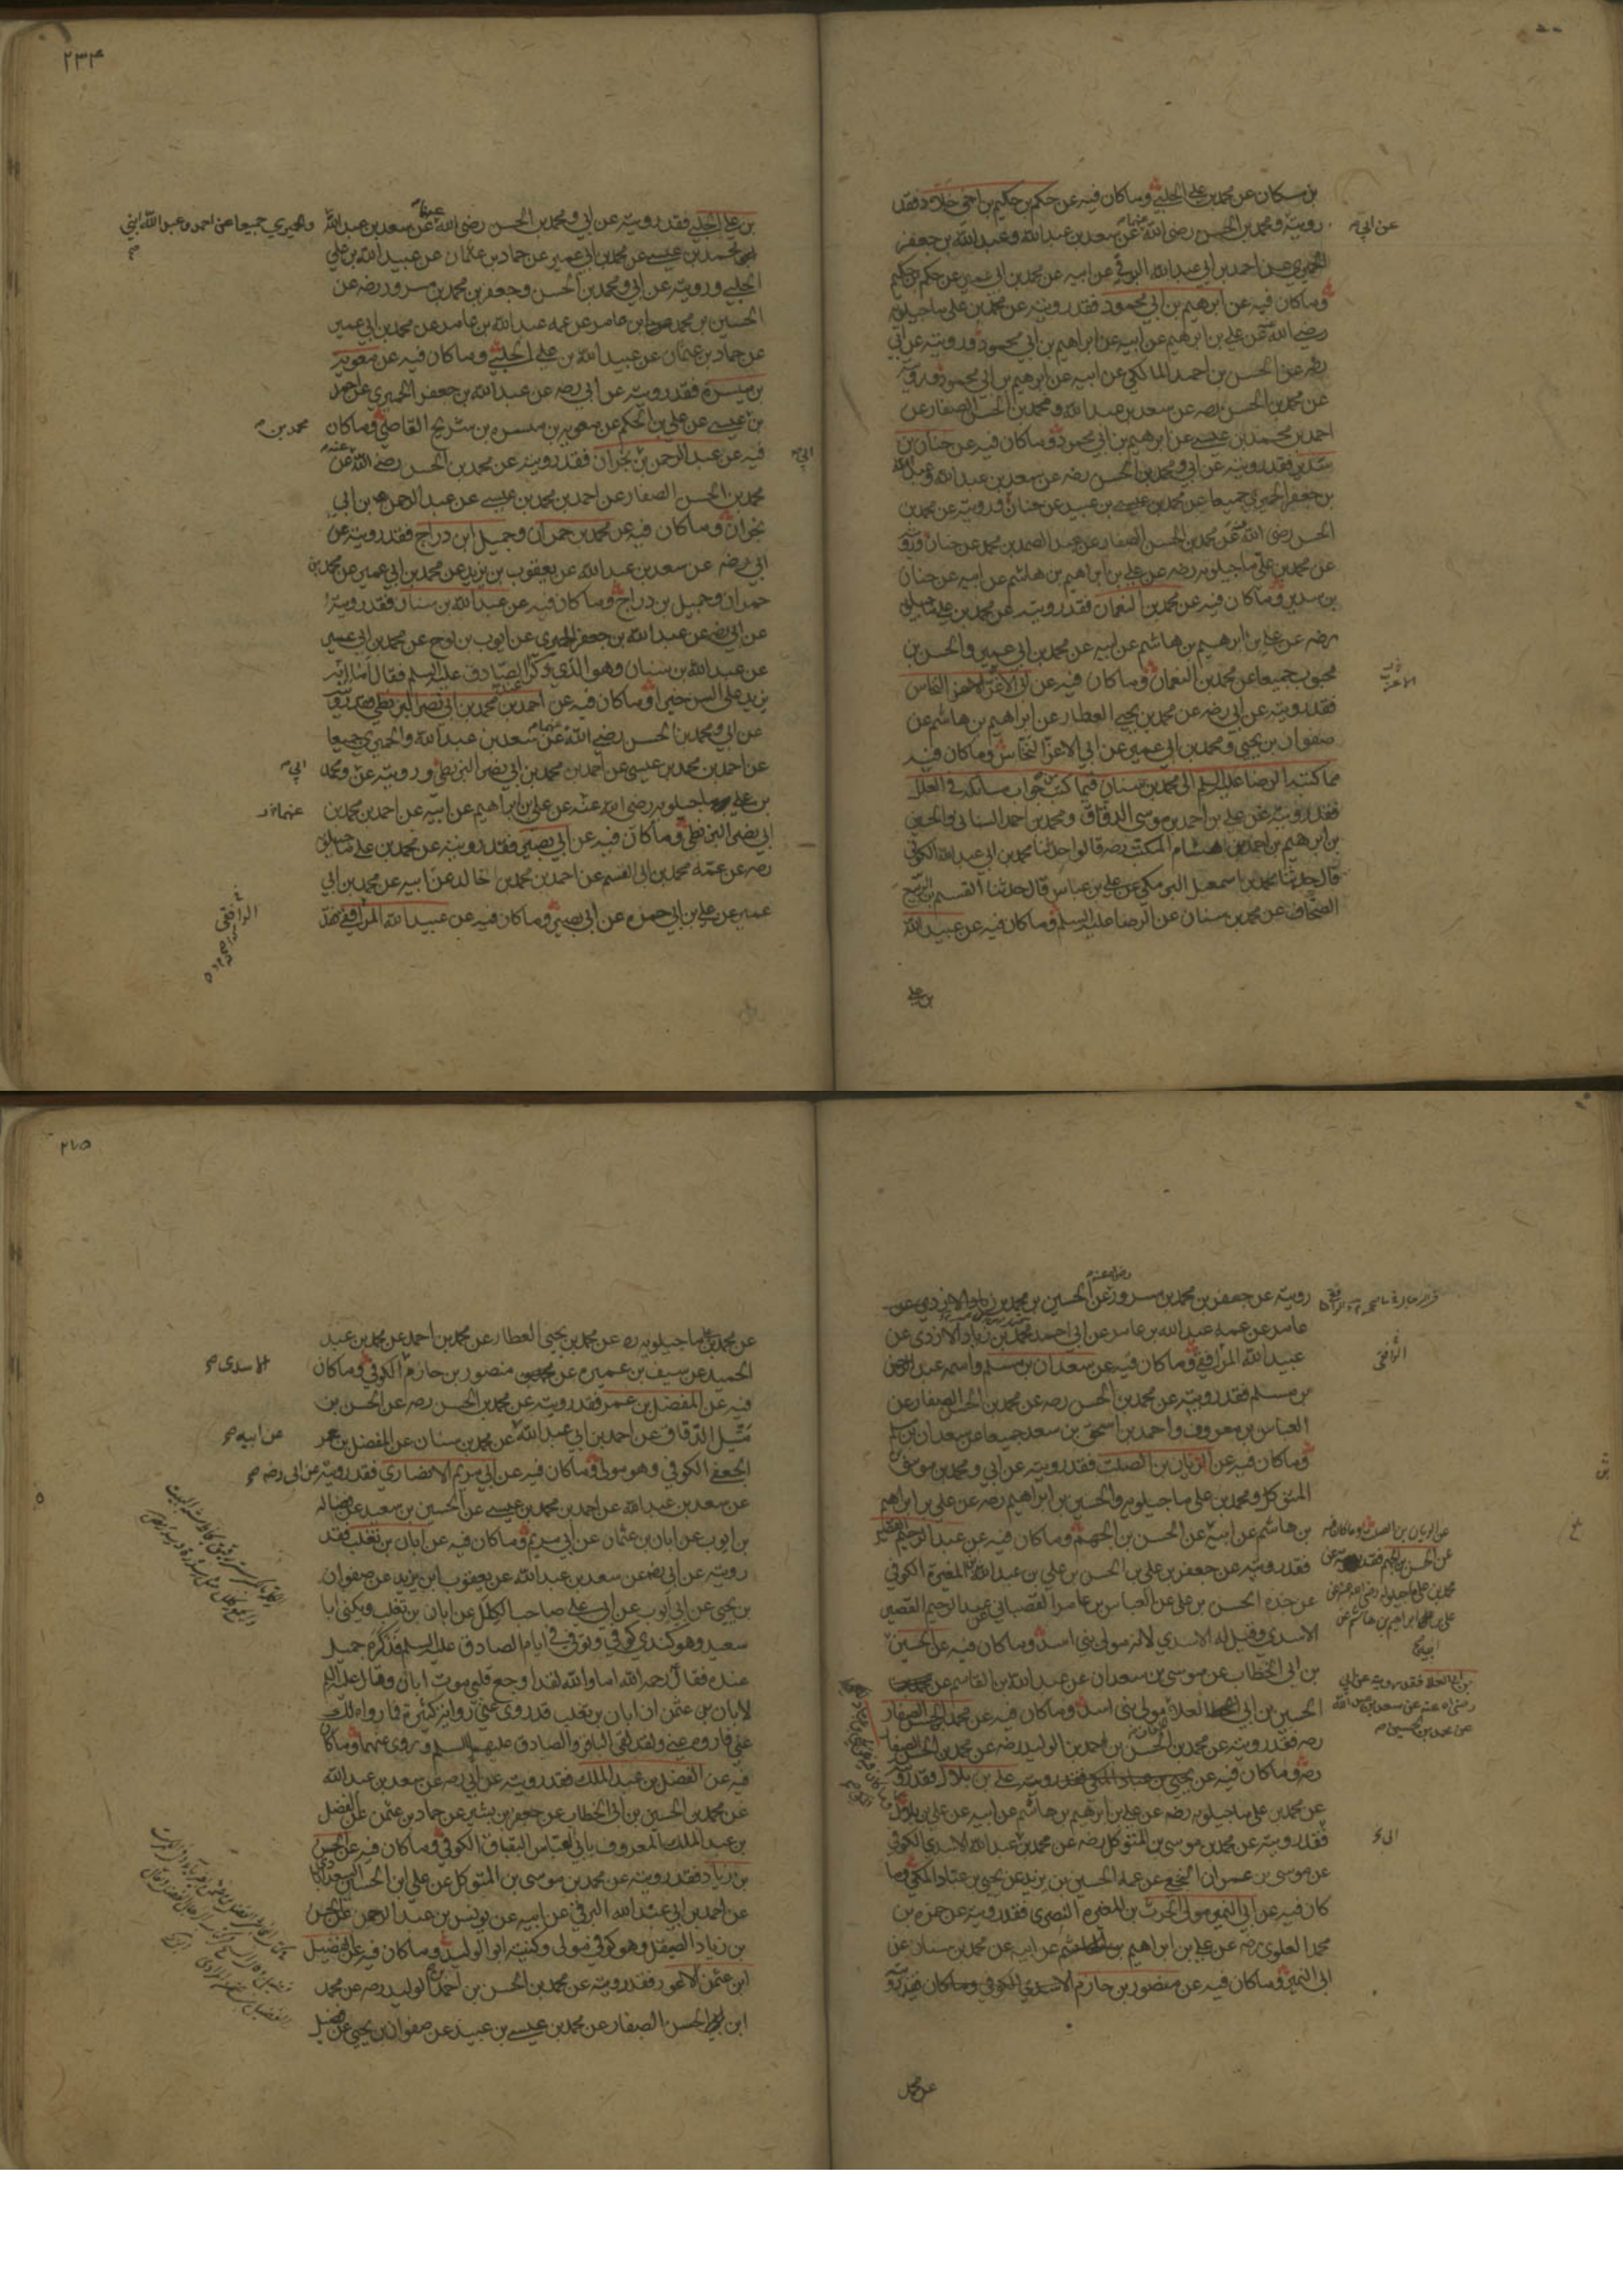 بن مسكان عن محمد بن علي الحلبي وما كان فيه عن حكم بن حكيم بن اخي خلاد فقد
رويته ومحمد بن الحسن رضي الله عنهما عن سعد بن عبد الله وعبد الله بن جعفر
عن ابي
الحميري عن احمد بن ابي عبد الله البرقي عن ابيه عن محمد بن ابي عمير عن حكم بن حكيم
وما كان فيه عن ابرهيم بن ابي محمود فقد رويته عن محمد بن علي ماجيلويه
رضي الله عنه عن علي بن ابرهيم عن ابيه عن ابراهيم بن ابي محمود ورويته عن ابي
رضه عن الحسن بن احمد المالكي عن ابيه عن ابرهيم بن ابي محمود ورويته
عن محمد بن الحسن رضه عن سعد بن عبد الله ومحمد بن الحسن الصفار عن
احمد بن محمد بن عيسى عن ابرهيم بن ابي محمود وما كان فيه عن حنان بن
سدير فقد رويته عن ابي ومحمد بن الحسن رضه عن سعد بن عبد الله وعبد الله
بن جعفر الحميري جميعا عن محمد بن عيسى بن عبيد عن حنان ورويته عن محمد بن
الحسن رضي الله عنه عن محمد بن الحسن الصفار عن عبد الصمد بن محمد عن حنان ورويته
عن محمد بن علي ماجيلويه رضه عن علي بن ابراهيم بن هاشم عن ابيه عن حنان
بن سدير وما كان فيه عن محمد بن النعمان فقد رويته عن محمد بن علي ماجيلويه
رضه عن علي بن ابرهيم بن هاشم عن ابيه عن محمد بن ابي عمير والحسن بن
محبوب جميعا عن محمد بن النعمان وما كان فيه عن ابي الاعز النخاس
فقد رويته عن ابي رضه عن محمد بن يحيى العطار عن ابراهيم بن هاشم عن
صفوان بن يحيى ومحمد بن ابي عمير عن ابي الاعز النخاس وما كان فيه
مما كتبه الرضا عليه السلم الى محمد بن سنان فيما كتب من جواب مسائله في العلل
فقد رويته عن علي بن احمد بن موسى الدقاق ومحمد بن احمد السنائي والحسين
بن ابرهيم بن احمد بن هشام المكتب رضه قالوا حدثنا محمد بن ابي عبد الله الكوفي
قال حدثنا محمد بن اسمعيل البرمكي عن علي بن عباس قال حدثنا القسم بن الربيع
الصحاف عن محمد بن سنان عن الرضا عليه السلم وما كان فيه عن عبيد الله
بن علي
٢٣٤
بن علي الحلبي فقد رويته عن ابي ومحمد بن الحسن رضي الله عنهما عن سعد بن عبد الله
والحميري جميعا عن احمد وعبد الله ابني
محمد بن عيسى عن محمد بن ابي عمير عن حماد بن عثمان عن عبيد الله بن علي
الحلبي ورويته عن ابي ومحمد بن الحسن وجعفر بن محمد بن مسرور رضه عن
الحسين بن محمد بن عامر عن عمه عبد الله بن عامر عن محمد بن ابي عمير
عن حماد بن عثمان عن عبيد الله بن علي الحلبي وما كان فيه عن معوية
بن ميسرة فقد رويته عن ابي رضه عن عبد الله بن جعفر الحميري عن احمد
بن عيسى عن علي بن الحكم عن معوية بن ميسره بن شريح القاضي وما كان
محمد بن
فيه عن عبد الرحمن بن نجران فقد رويته عن محمد بن الحسن رضي الله عنه عن
ابي
محمد بن الحسن الصفار عن احمد بن محمد بن عيسى عن عبد الرحمن بن ابي
نجران وما كان فيه عن محمد بن حمران وجميل ابن دراج فقد رويته عن
ابي رضه عن سعد بن عبد الله عن يعقوب بن يزيد عن محمد بن ابي عمير عن محمد بن
حمران وجميل بن دراج وما كان فيه عن عبد الله بن سنان فقد رويته
عن ابي رضه عن عبد الله بن جعفر الحميري عن ايوب بن نوح عن محمد بن ابي عمير
عن عبد الله بن سنان وهو الذي ذكر الصادق عليه السلم فقال اما انه
يزيد على السن خيرا وما كان فيه عن احمد بن محمد بن ابي نصر البزنطي فقد رويته
عن ابي ومحمد بن الحسن رضي الله عنهما عن سعد بن عبد الله والحميري جميعا
عن احمد بن محمد بن عيسى عن احمد بن محمد بن ابي نصر البزنطي ورويته عن ومحمد
ابي
بن علي ماجيلويه رضي الله عنه عن علي بن ابراهيم عن ابيه عن احمد بن محمد بن
عنهما
ابي نصر البزنطي وما كان فيه عن ابي بصير فقد رويته عن محمد بن علي ماجيلويه
رضه عن عمه محمد بن ابي القسم عن احمد بن محمد بن خالد عن ابيه عن محمد بن ابي
عمير عن علي بن ابي حمزه عن ابي بصير وما كان فيه عن عبيد الله المرافقي فقد
الرافقي
رويته عن جعفر بن محمد بن مسرور عن الحسين بن محمد بن
رضي الله عنه
عامر عن عمه عبد الله بن عامر عن ابي احمد محمد بن زياد الازدي عن
عبيد الله المرافقي وما كان فيه عن سعدان بن مسلم واسمه عبد الرحمن
الرافقي
بن مسلم فقد رويته عن محمد بن الحسن رضه عن محمد بن الحسن الصفار عن
العباس بن معروف واحمد بن اسحق بن سعد جميعا عن سعدان بن مسلم
وما كان فيه عن الريان بن الصلت فقد رويته عن ابي ومحمد بن موسى بن
المتوكل ومحمد بن علي ماجيلويه والحسين بن ابراهيم رضه عن علي بن ابراهيم
بن هاشم عن ابيه عن الحسن بن الجهم وما كان فيه عن عبد الرحيم القصير
عن الريان بن الصلت وما كان فيه
عن الحسن بن الجهم فقد رويته عن
محمد بن علي ماجيلويه رضي الله عنه عن
علي بن ابراهيم بن هاشم عن
ابيه
فقد رويته عن جعفر بن علي بن الحسن بن علي بن عبد الله بن المغيرة الكوفي
عن جده الحسن بن علي عن العباس بن عامر القصباني عن عبد الرحيم القصير
الاسدي وقيل له الاسدي لانه مولى بني اسد وما كان فيه عن الحسين
بن ابي الخطاب عن موسى بن سعدان عن عبد الله بن القاسم عن
بن ابي العلا فقد رويته عن ابي
رضي الله عنه عن سعد بن عبد الله
عن محمد بن الحسين
الحسين بن ابي العلا مولى بني اسد وما كان فيه عن محمد بن الحسن الصفار
رضه فقد رويته عن محمد بن الحسن بن احمد بن الوليد رضه عن محمد بن الحسن الصفار
رضه وما كان فيه عن يحيى بن عباد المكي فقد رويته علي بن بلال فقد رويته
عن محمد بن علي ماجيلويه رضه عن علي بن ابرهيم بن هاشم عن ابيه عن علي بن بلال
فقد رويته عن محمد بن موسى بن المتوكل رضه عن محمد بن عبد الله الاسدي الكوفي
ابي
عن موسى بن عمران النخعي عن عمه الحسين بن يزيد عن يحيى بن عباد المكي وما
كان فيه عن ابي النمير مولى الحرث بن المغيره النصري فقد رويته عن حمزه بن
محمد العلوي رضه عن علي بن ابراهيم بن هاشم عن ابيه عن محمد بن سنان عن
ابي النمير وما كان فيه عن منصور بن حازم الاسدي الكوفي وما كان فقد رويته
عن محمد
عن محمد بن علي ماجيلويه ره عن محمد بن يحيى العطار عن محمد بن احمد عن محمد بن عبد
الحميد عن سيف بن عميره عن منصور بن حازم الكوفي وما كان
الاسدي
فيه عن المفضل بن عمر فقد رويته عن محمد بن الحسن رضه عن الحسن بن
متيل الدقاق عن احمد بن ابي عبد الله عن محمد بن سنان عن المفضل بن عمر
عن ابيه
الجعفي الكوفي وهو مولى وما كان فيه عن ابي مريم الانصاري فقد رويته عن ابي رضه
عن سعد بن عبد الله عن احمد بن محمد بن عيسى عن الحسين بن سعيد عن فضاله
بن ايوب عن ابان بن عثمان عن ابي مريم وما كان فيه عن ابان بن تغلب فقد
رويته عن ابي رضه عن سعد بن عبد الله عن يعقوب ابن يزيد عن صفوان
بن يحيى عن ابي ايوب عن ابي علي صاحب الكلل عن ابان بن تغلب ويكنى ابا
سعيد وهو كندي كوفي وتوفي في ايام الصادق عليه السلم فذكره جميل
عنده فقال رحمه الله اما والله لقد اوجع قلبي موت ابان وقال عليه السلم
لابان بن عثمن ان ابان بن تغلب قد روى عني رواية كثيرة فما رواه لك
عني فاروه عني ولقد لقي الباقر والصادق عليهما السلم وروى عنهما وما كان
فيه عن الفضل بن عبد الملك فقد رويته عن ابي رضه عن سعد بن عبد الله
عن محمد بن الحسين بن ابي الخطاب عن جعفر بن بشير عن حماد بن عثمن عن الفضل
بن عبد الملك المعروف بابي العباس البقباق الكوفي وما كان فيه عن الحسن
بن زياد فقد رويته عن محمد بن موسى بن المتوكل عن علي ابن الحسين السعدابادي
عن احمد بن ابي عبد الله البرقي عن ابيه عن يونس بن عبد الرحمن عن الحسن
بن زياد الصيقل وهو كوفي مولى وكنيته ابو الوليد وما كان فيه عن الفضيل
ابن عثمن الاعور فقد رويته عن محمد بن الحسن بن احمد بن الوليد رضه عن محمد
ابن الحسن الصفار عن محمد بن عيسى بن عبيد عن صفوان بن يحيى عن فضيل